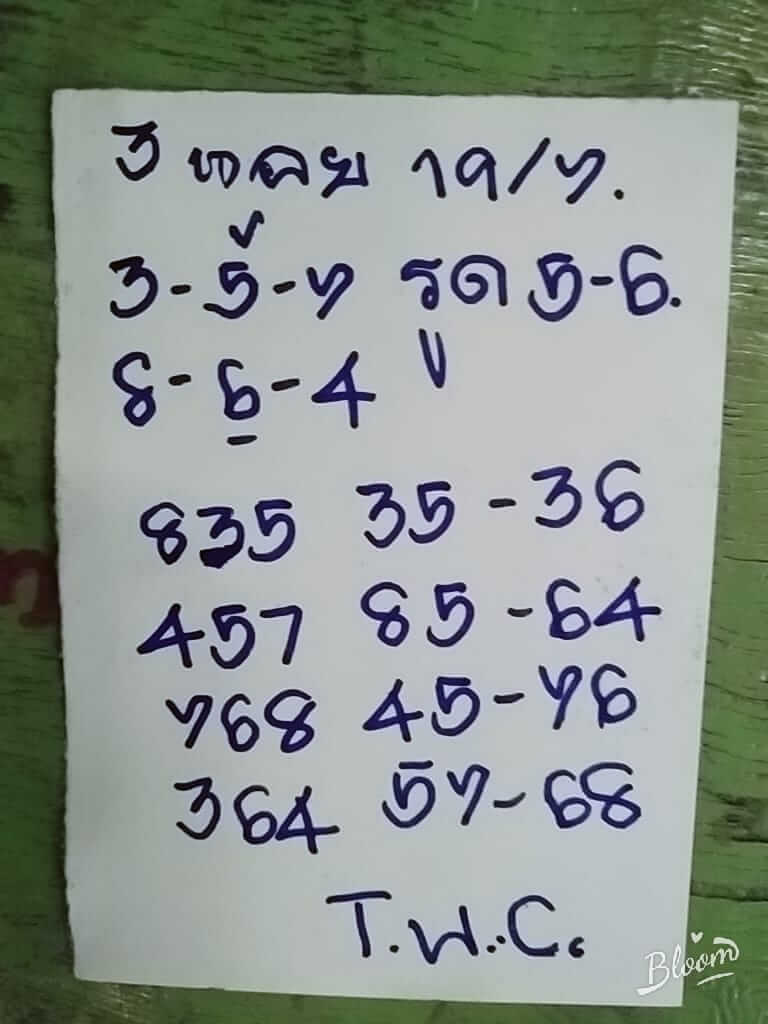 3 หอย 19/7.
3-5-7 รูด 5-6.
8-6-4
835 35-36
457 85-64
768 45-76
364 57-68
T.W.C.
Bloom